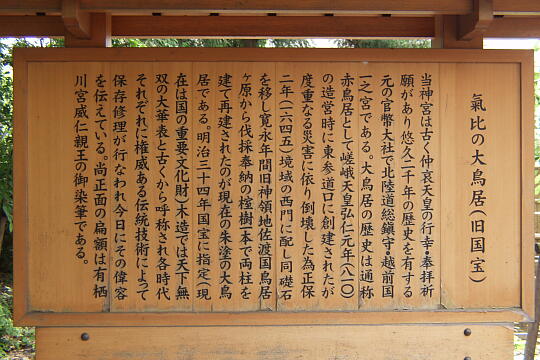 氣比の大鳥居（旧国宝）
当神宮は古く仲哀天皇の行幸・奉拝祈
願があり悠久二千年の歴史を有する
元の官幣大社で北陸道総鎮守・越前国
一之宮である。大鳥居の歴史は通称
赤鳥居として嵯峨天皇弘仁元年（八一〇）
の造営時に東参道口に創建されたが
度重なる災害に依り倒壊した為正保
二年（一六四五）境域の西門に配し同礎石
を移し寛永年間旧神領地佐渡国鳥居
ヶ原から伐採奉納の榁樹一本で両柱を
建て再建されたのが現在の朱塗の大鳥
居である。明治三十四年国宝に指定（現
在は国の重要文化財）木造では天下無
双の大華表と古くから呼称され各時代
それぞれに権威ある伝統技術によって
保存修理が行なわれ今日にその偉容
を伝えている。尚正面の扁額は有栖
川宮威仁親王の御染筆である。